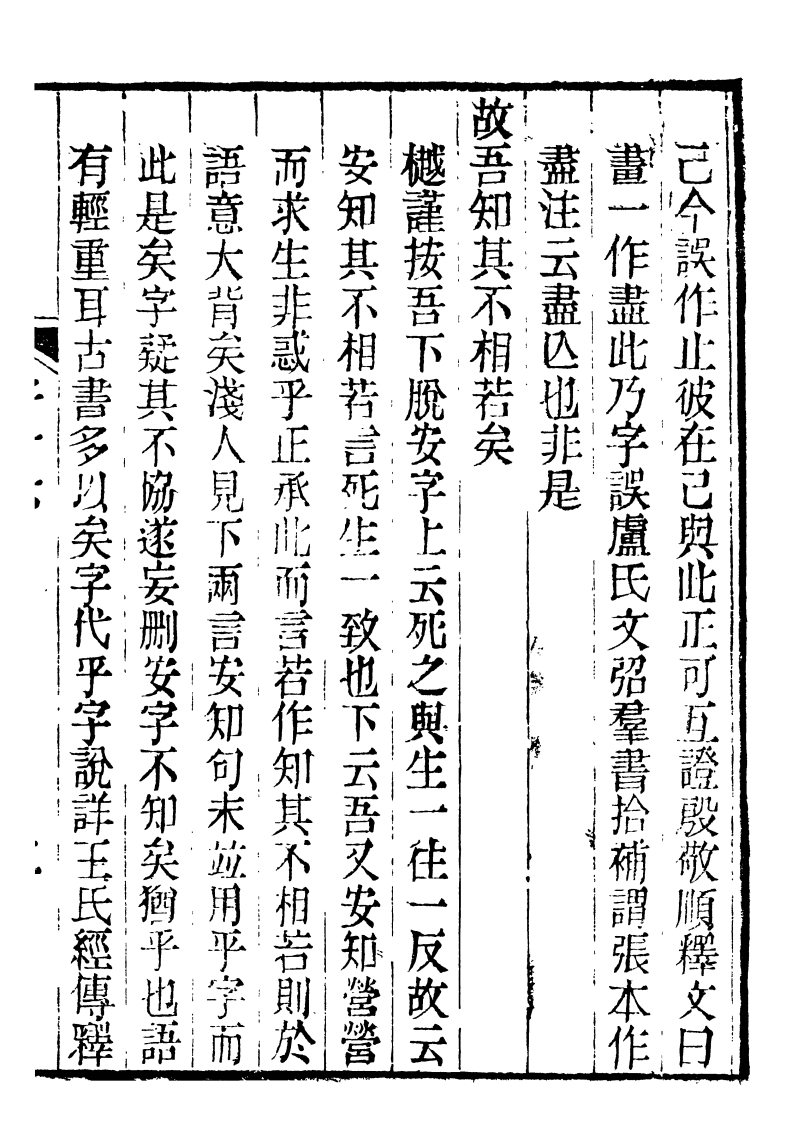 己今誤作止彼在己與此正可互證殷敬順釋文曰
畫一作盡此乃字誤盧氏文弨羣書拾補謂張本作
盡注云盡亾也非是
故吾知其不相若矣
樾謹按吾下脫安字上云死之與生一往一反故云
安知其不相若言死生一致也下云吾又安知營營
而求生非惑乎正承此而言若作知其不相若則於
語意大背矣淺人見下兩言安知句末竝用乎字而
此是矣字疑其不協遂妄删安字不知矣猶乎也語
有輕重耳古書多以矣字代乎字說詳王氏經傳釋